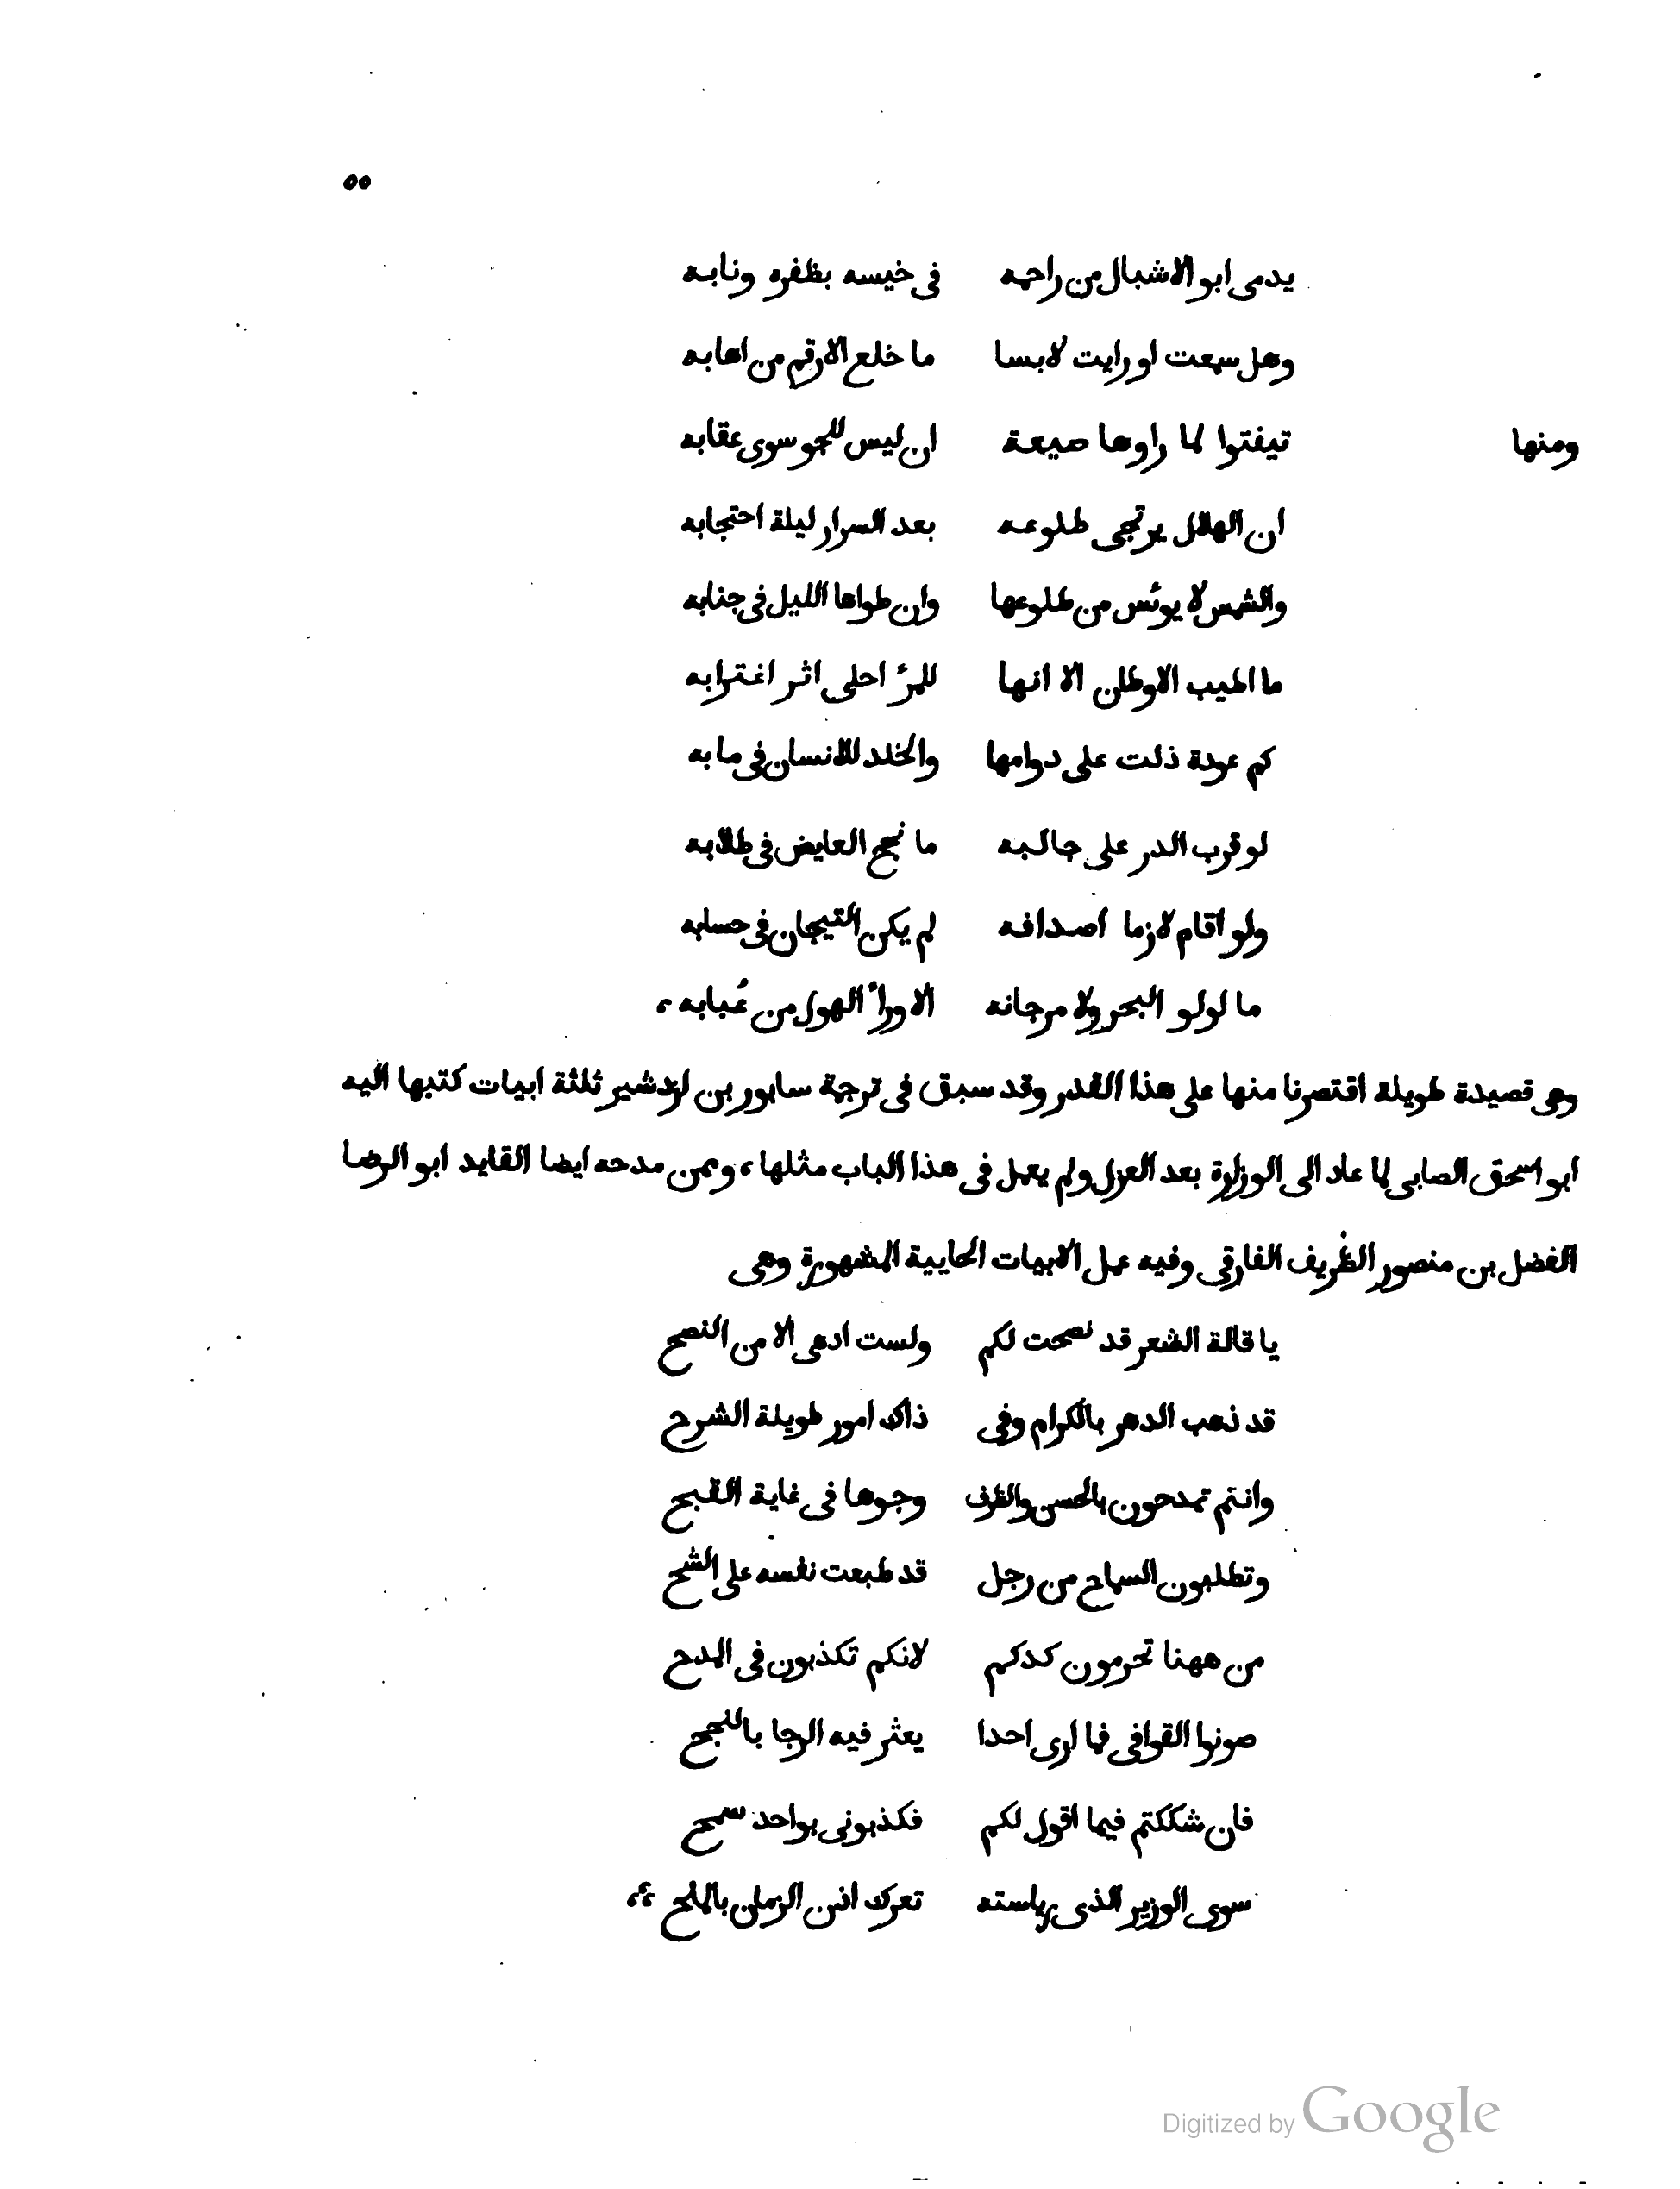 ٥٥
يدمى ابو الاشبال من زاحمه في خيسه بظفره ونابه
وهل سمعت او رايت لابسا ما خلع الارقم من اهابه
ومنها تيقنوا لما راوها صيعة ان ليس للجو سوى عقابه
ان الهلال يرتجى طلوعه بعد السرار ليلة احتجابه
والشمس لا يوئس من طلوعها وان طواها الليل في جنابه
ما اطيب الاوطان الا انها للمرء احلى اثر اغترابه
كم عودة دلت على دوامها والخلد للانسان في مابه
لو قرب الدر على جالبه ما نجح الغايص في طلابه
ولو اقام لازما اصدافه لم يكن التيجان في حسابه
ما لولو البحر ولا مرجانه الا ورأ الهول من عُبابه،
وهى قصيدة طويلة اقتصرنا منها على هذا القدر وقد سبق في ترجمة سابور بن اردشير ثلثة ابيات كتبها اليه
ابو اسحق الصابى لما عاد الى الوزارة بعد العزل ولم يعمل في هذا الباب مثلها، وممن مدحه ايضا القايد ابو الرضا
الفضل بن منصور الظريف الفارقى وفيه عمل الابيات الحايية المشهورة وهى
يا قالة الشعر قد نصحت لكم ولست ادهى الا من النصح
قد ذهب الدهر بالكرام وفى ذاك امور طويلة الشرح
وانتم تمدحون بالحسن والظرف وجوها في غاية القبح
وتطلبون السماح من رجل قد طبعت نفسه على الشح
من ههنا تحرمون كدكم لانكم تكذبون في المدح
صونوا القوافى فما ارى احدا يعثر فيه الرجا بالنجح
فان شككتم فيما اقول لكم فكذبونى بواحد سمح
سوى الوزير الذى رياسته تعرك اذن الزمان بالملح ،،
Digitized by Google